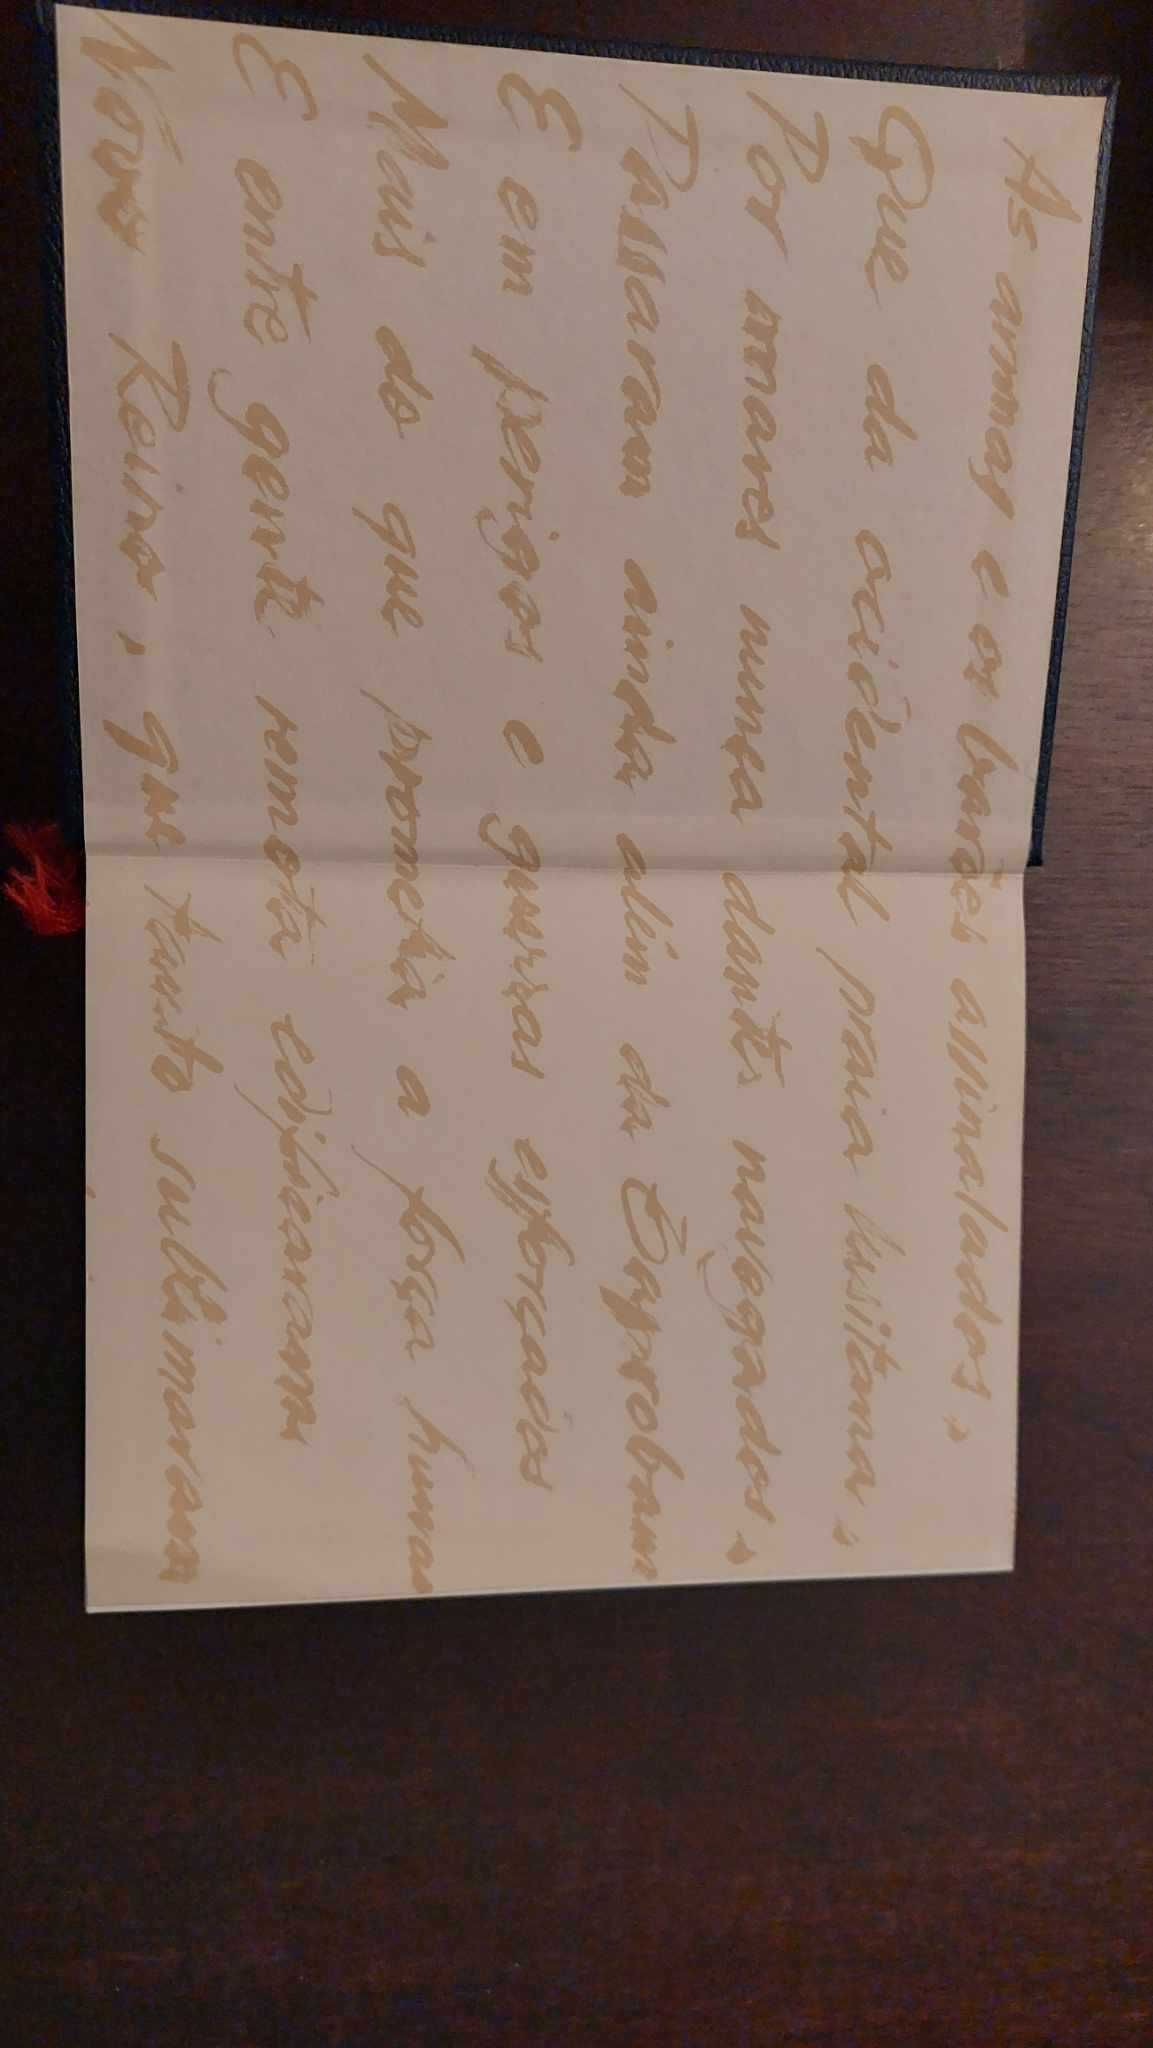 As armas e os barões assinalados,
Que da ocidental praia lusitana,
Por mares nunca dantes navegados,
Passaram ainda além da Taprobana
E em perigos e guerras esforçados
Mais do que prometia a força humana
E entre gente remota edificaram
Novo Reino, que tanto sublimaram